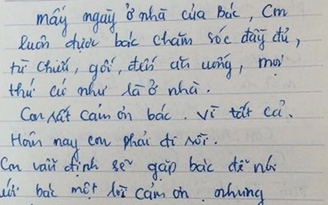 mấy ngày ở nhà của bác, Con
luôn được bác chăm sóc đầy đủ,
từ chăn, gối, đến ăn uống, mọi
thứ cứ như là ở nhà.
Con rất cám ơn bác. Vì tất cả.
Hôm nay con phải đi rồi.
Con vẫn định sẽ gặp bác để nói
với bác một lời cảm ơn. nhưng